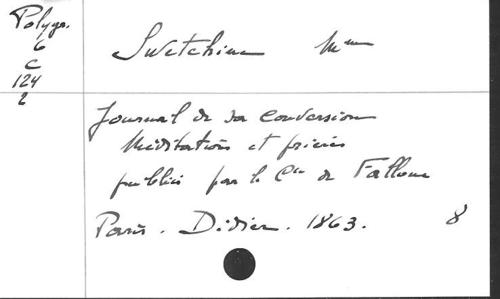 Polygr.
6
C
124
2
Swetchine Mme
Journal de sa conversion
Méditations et prières
publiés par le Cte de Falloux
Paris. Didier. 1863. 8